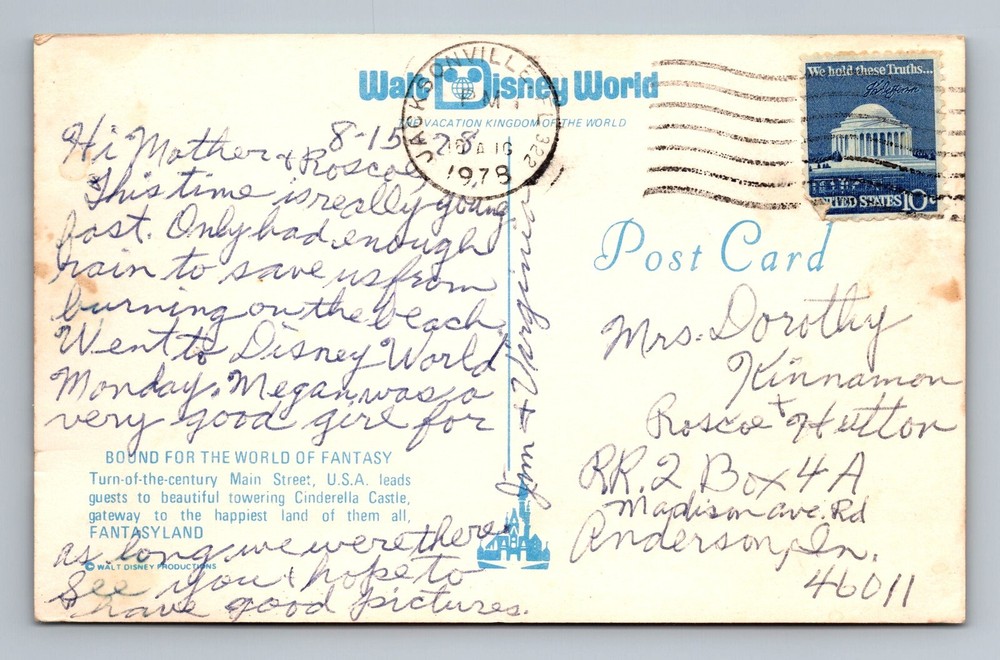 Walt Disney World
THE VACATION KINGDOM OF THE WORLD
JACKSONVILLE, FL 322
PM
16 AUG
1978
We hold these Truths...
UNITED STATES 10c
8-15-78
Hi Mother & Roscoe
This time is really going
fast. Only had enough
rain to save us from
burning on the beach.
Went to Disney World
Monday. Megan was a
very good girl for
BOUND FOR THE WORLD OF FANTASY
Turn-of-the-century Main Street, U.S.A. leads
guests to beautiful towering Cinderella Castle,
gateway to the happiest land of them all,
FANTASYLAND
as long we were there.
© WALT DISNEY PRODUCTIONS
See you & hope to
have good pictures.
Jim & Virginia
Post Card
Mrs. Dorothy
Kinnamon
Roscoe + Hutton
RR. 2 Box 4A
Madison ave. Rd
Anderson, In.
46011